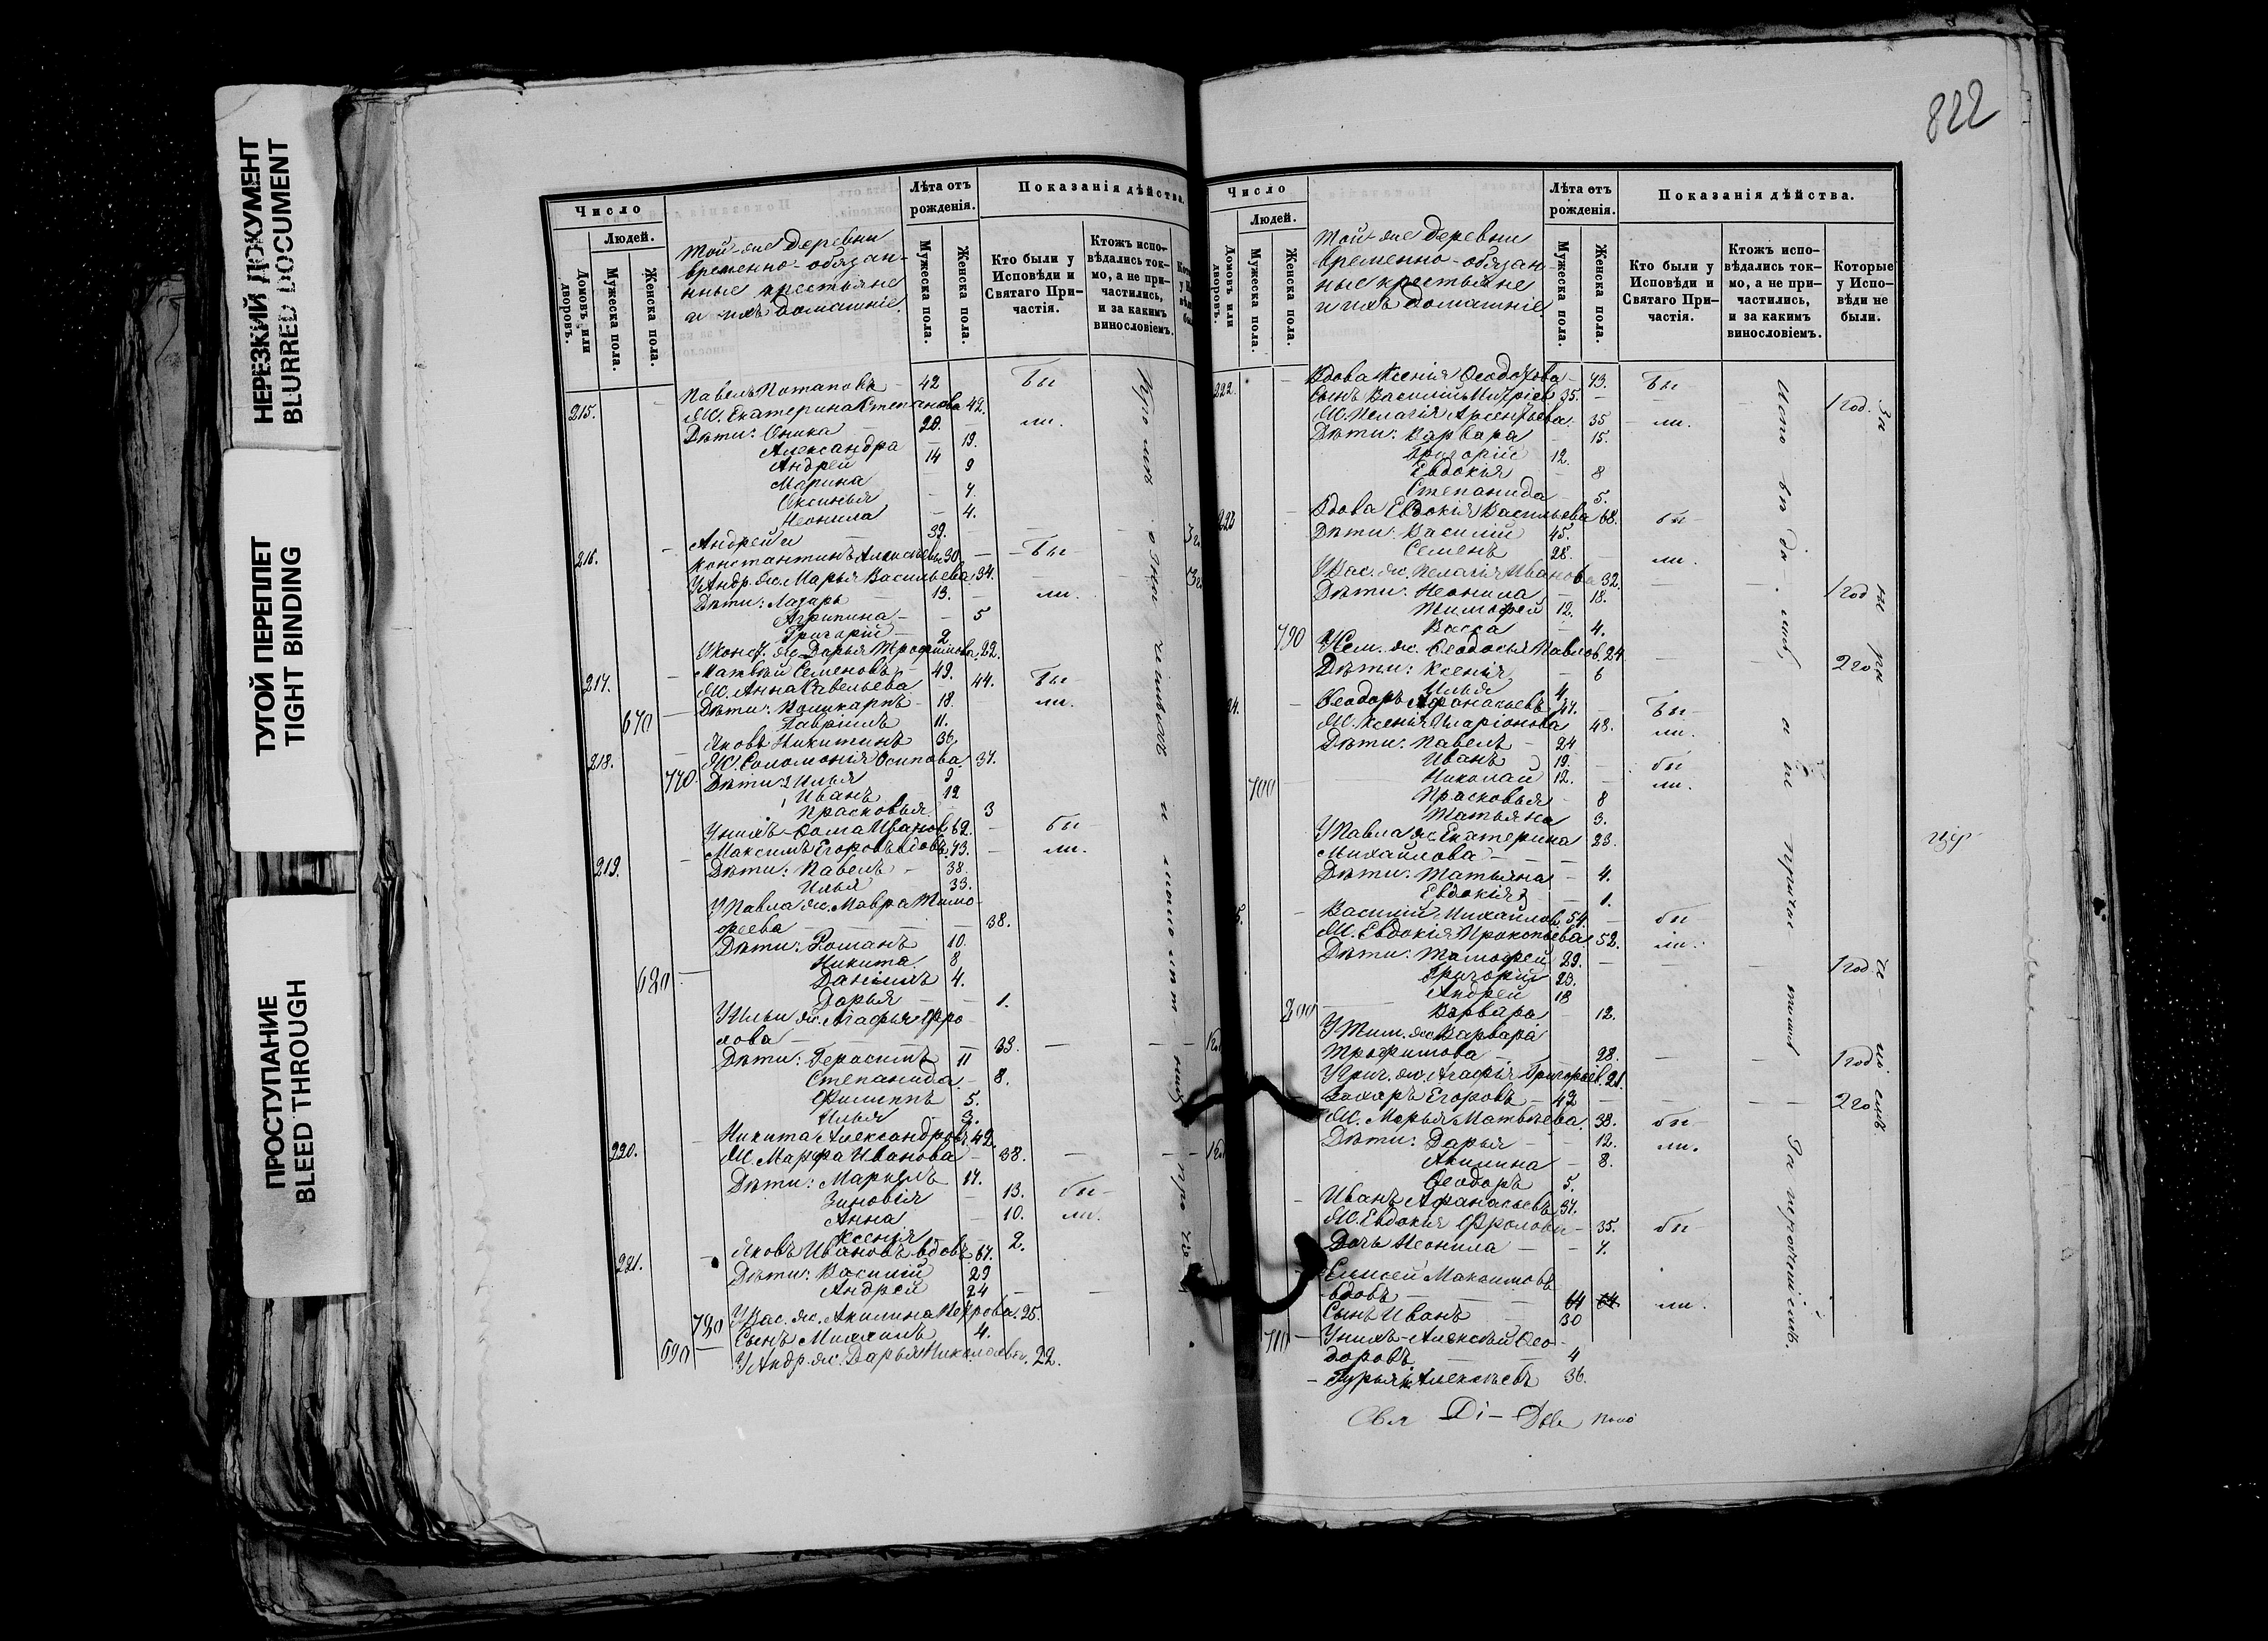 НЕРЕЗКИЙ ДОКУМЕНТ
BLURRED DOCUMENT
ТУГОЙ ПЕРЕПЛЕТ
TIGHT BINDING
ПРОСТУПАНИЕ
BLEED THROUGH
Число
Людей.
Домовъ или дворовъ.
Мужеска пола.
Женска пола.
Той-же деревни
временно-обязан-
ные крестьяне
и ихъ домашніе.
Лѣта отъ рожденія.
Мужеска пола.
Женска пола.
Показанія дѣйства.
Кто были у Исповѣди и Святаго Причастія.
Ктожъ исповѣдались токмо, а не причастились, и за какимъ винословіемъ.
215. Павелъ Потаповъ 42 Бы
Ж. Екатерина Степанова 42.
Дѣти: Оника 20. ли.
Александра 19.
Андрей 14
Марина 9
Ксинья 7.
Неонила 4.
216. Андрей и 39.
Константинъ Алексѣевы 30 Бы
У Андр. ж. Марья Васильева 34.
Дѣти: Лазарь 13. ли.
Агрипина 5
Григорій 2
У Конст. ж. Дарья Трофимова 22.
217. Матвѣй Семеновъ 49.
Ж. Анна Савельева 44. Бы
670 Дѣти: Поликарпъ 18. ли.
Гавріилъ 11.
218. Яковъ Никитинъ 36.
Ж. Соломонія Осипова 37.
770. Дѣти: 2 Илья 9
1 Иванъ 12
Прасковья 3
У нихъ Фома Ивановъ 62. бы
219. Максимъ Егоровъ вдовъ 73. ли.
Дѣти: Павелъ 38.
Илья 33.
У Павла ж. Мавра Тимо-
феева 38.
Дѣти: Романъ 10.
Никита 8
680 Даніилъ 4.
Дарья 1.
У Ильи ж. Агафья Фро-
лова 33.
Дѣти: Герасимъ 11
Степанида 8.
Филиппъ 5.
Илья 3.
220. Никита Александровъ 42.
Ж. Марфа Иванова 38.
Дѣти: Маркелъ 17.
Зиновія 13. бы
Анна 10. ли.
Ксенія 2.
221. Яковъ Ивановъ вдовъ 67.
Дѣти: Василій 29
Андрей 24
780 У Вас. ж. Акилина Петрова 25.
690 Сынъ Михаилъ 4.
У Андр. ж. Дарья Николаева. 22.
822
Число
Людей.
Домовъ или дворовъ.
Мужеска пола.
Женска пола.
Той-же деревни
временно-обязан-
ные крестьяне
и ихъ домашніе
Лѣта отъ рожденія.
Мужеска пола.
Женска пола.
Показанія дѣйства.
Кто были у Исповѣди и Святаго Причастія.
Ктожъ исповѣдались токмо, а не причастились, и за какимъ винословіемъ.
Которые у Исповѣди не были.
222. Вдова Ксенія Ѳеодорова 73. Бы
Сынъ Василій 35. 1 год.
Ж. Пелагія Арсентьева 35 ли.
Дѣти: Варвара 15.
Григорій 12.
Евдокія 8
Степанида 5.
223 Вдова Евдокія Васильева 68. бы
Дѣти: Василій 45.
Семенъ 28. ли.
У Вас. ж. Пелагія Иванова 32.
Дѣти: Неонила 18. 1 год
Тимофей 12.
Васса 4.
790 У Сем. ж. Ѳеодосья Павлов. 24 2 го
Дѣти: Ксенія 6
Илья 4
24. Ѳеодоръ Афанасьевъ 47. Бы
Ж. Ксенія Иларіонова 48. ли.
Дѣти: Павелъ 24
Иванъ 19. бы
700 Николай 12. ли.
Прасковья 8
Татьяна 3.
У Павла ж. Екатерина 23.
Михайлова
Дѣти: Татьяна 4.
Евдокія 1.
5. Василій Михайлов. 54. бы
Ж. Евдокія Прокопьева 52. ли.
Дѣти: Тимофей 29. 1 год
Григорій 23.
Андрей 18
800 Варвара 12.
У Тим. ж. Варвара
Трофимова 28. 1 год
У Григ. ж. Агафья Григорьев. 21.
Захаръ Егоровъ 42 2 го
Ж. Марья Матвѣева 38. бы
Дѣти: Дарья 12. ли.
Акилина 8.
Ѳеодоръ 5.
Иванъ Афанасьевъ 37.
Ж. Евдокія Фролова 35. бы
Дочь Неонила 7.
Елисей Максимовъ
вдовъ 64 ли.
Сынъ Иванъ 30
710 У нихъ Алексѣй Ѳео-
доровъ 4
Гурьянъ Алексѣевъ 36.